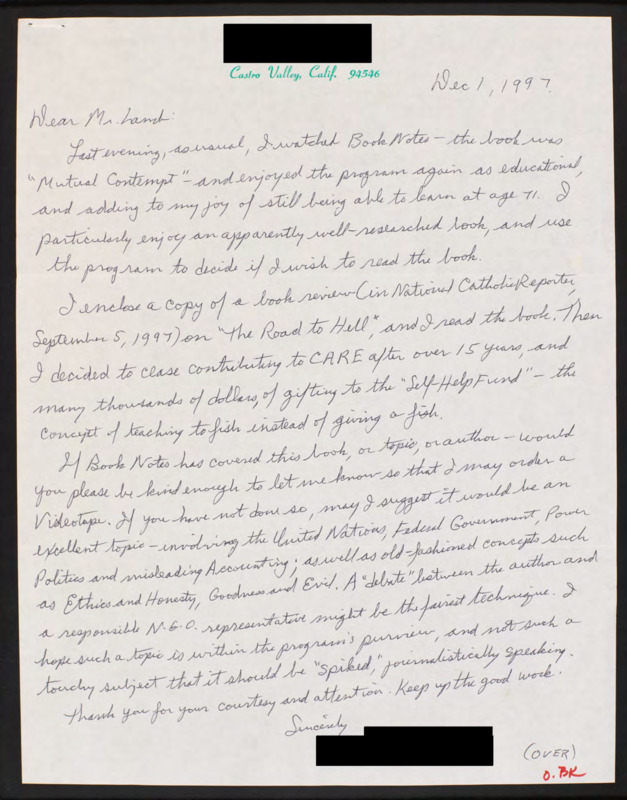 Castro Valley, Calif. 94546
Dec 1, 1997.
Dear Mr. Lamb:
Last evening, as usual, I watched Book Notes – the book was
"Mutual Contempt" – and enjoyed the program again as educational,
and adding to my joy of still being able to learn at age 71. I
particularly enjoy an apparently well-researched book, and use
the program to decide if I wish to read the book.
I enclose a copy of a book review (in National Catholic Reporter,
September 5, 1997) on "The Road to Hell", and I read the book. Then
I decided to cease contributing to CARE after over 15 years, and
many thousands of dollars, of gifting to the "Self-Help Fund" – the
concept of teaching to fish instead of giving a fish.
If Book Notes has covered this book, or topic, or author – would
you please be kind enough to let me know so that I may order a
Videotape. If you have not done so, may I suggest it would be an
excellent topic – involving the United Nations, Federal Government, Power
Politics and misleading Accounting; as well as old-fashioned concepts such
as Ethics and Honesty, Goodness and Evil. A "debate" between the author and
a responsible N.G.O. representative might be the fairest technique. I
hope such a topic is within the program's purview, and not such a
touchy subject that it should be "spiked," journalistically speaking.
Thank you for your courtesy and attention. Keep up the good work.
Sincerely
(OVER)
O.BK